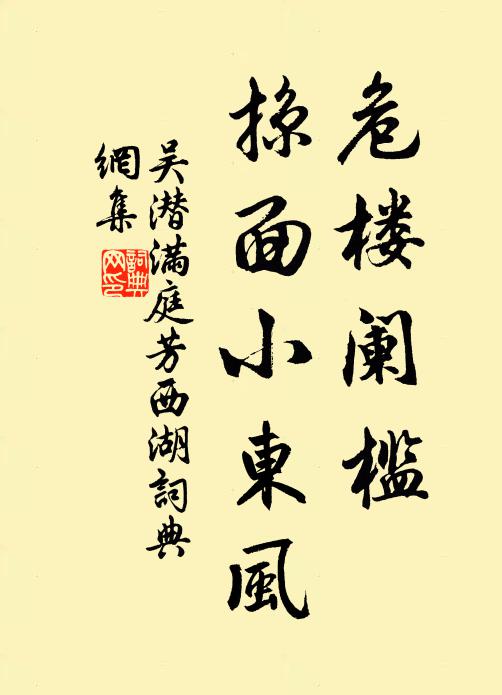 危楼阑槛
掠面小東風
吴潜满庭芳西湖詞典
網集
詞典
网印